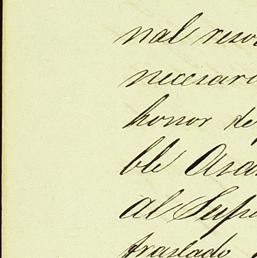 nal reso
necesari
honor de
ble Asa
al Supr
traslado